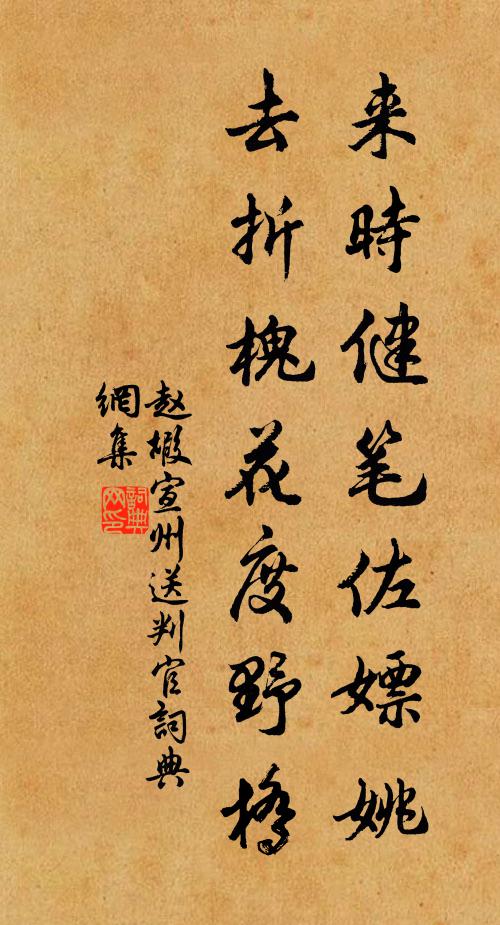 来時健笔佐嫖姚
去折槐花度野橋
赵嘏宣州送判官詞典
網集
詞典
网印